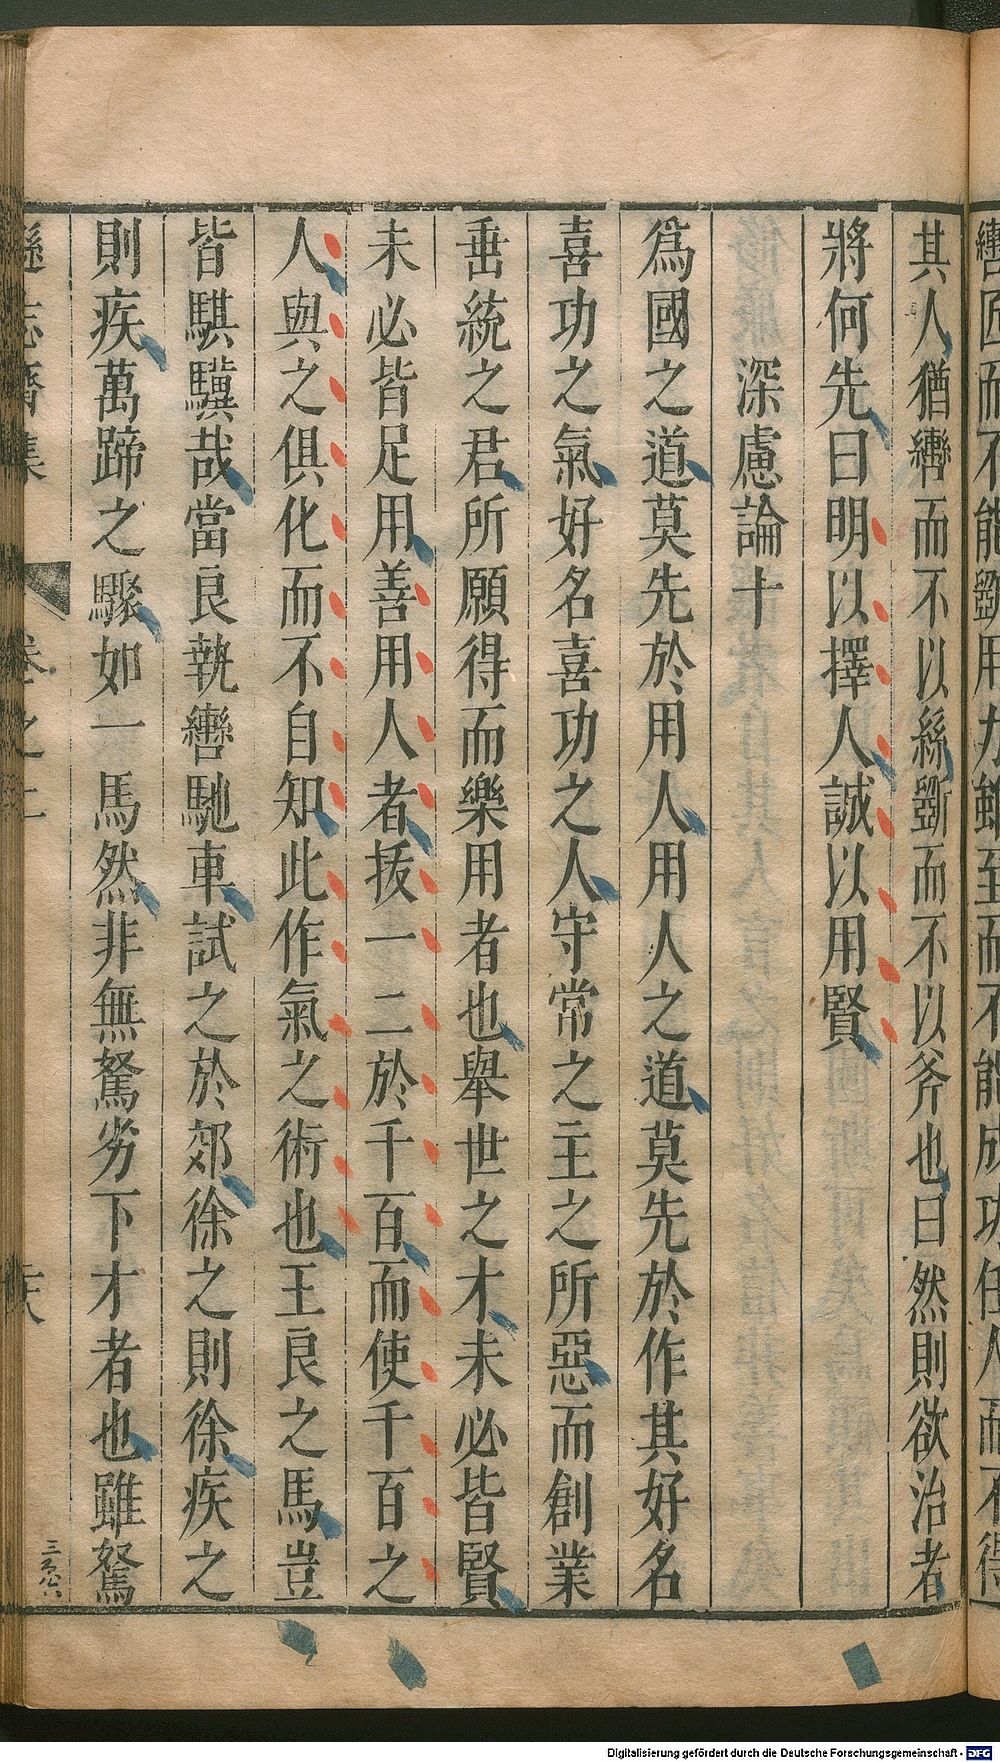 轡匠而不能斵用力雖至而不能成功任人而不得
其人猶轡而不以絲斵而不以斧也曰然則欲治者
將何先曰明以擇人誠以用賢
深慮論十
爲國之道莫先於用人用人之道莫先於作其好名
喜功之氣好名喜功之人守常之主之所惡而創業
垂統之君所願得而樂用者也舉世之才未必皆賢
未必皆足用善用人者拔一二於千百而使千百之
人與之俱化而不自知此作氣之術也王良之馬豈
皆騏驥哉當良執轡馳車試之於郊徐之則徐疾之
則疾萬蹄之驟如一馬然非無駑劣下才者也雖駑
遜志齋集 卷之二 六
三百八
Digitalisierung gefördert durch die Deutsche Forschungsgemeinschaft - DFG